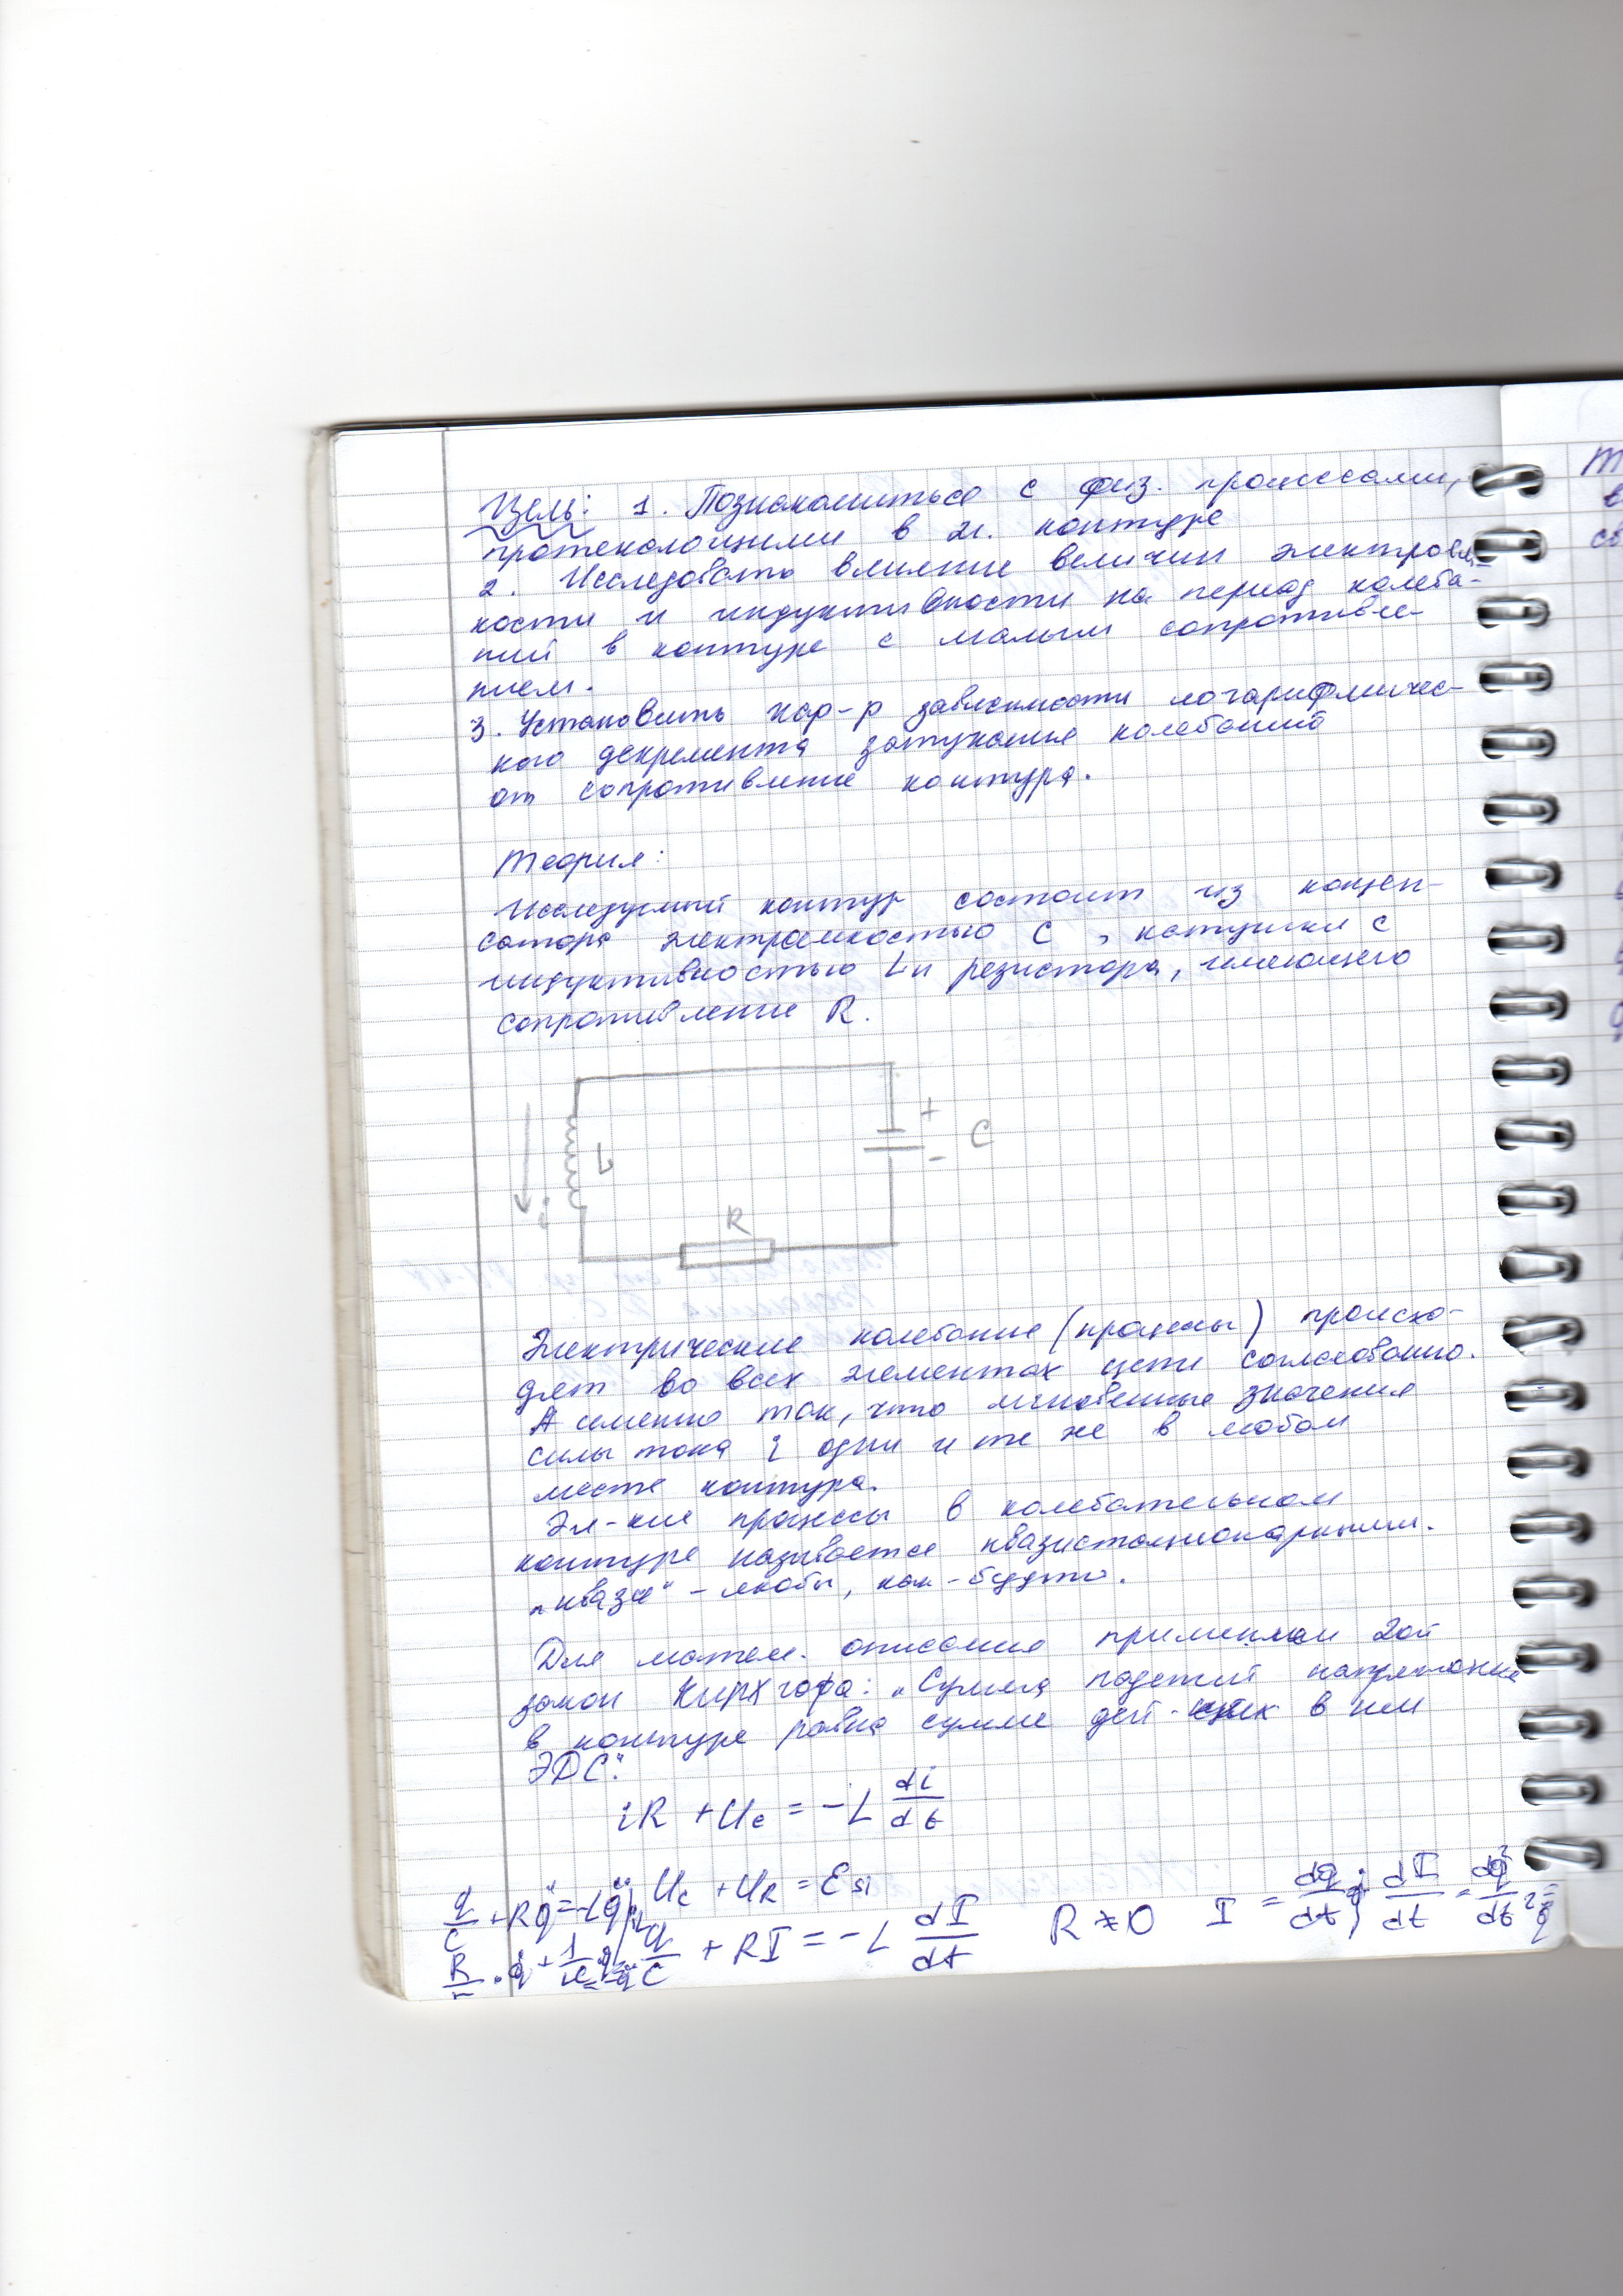 Цель: 1. Познакомиться с физ. процессами,
протекающими в эл. контуре
2. Исследовать влияние величин электроём-
кости и индуктивности на период колеба-
ний в контуре с малым сопротивле-
нием.
3. Установить хар-р зависимости логарифмичес-
кого декремента затухания колебаний
от сопротивление контура.
Теория:
Исследуемый контур состоит из конден-
сатора электроемкостью C, катушки с
индуктивностью L и резистора, имеющего
сопротивление R.
+
C
L
-
i
R
Электрические колебание (процессы) происхо-
дят во всех элементах цепи согласовано.
А именно так, что мгновенные значения
силы тока i одни и те же в любом
месте контура.
Эл-кие процессы в колебательном
контуре называется квазистационарными.
„квази" - якобы, как-будто.
Для матем. описание применим 2ой
закон Кирхгофа: „Сумма падений напряжение
в контуре равна сумме дей-щих в нём
ЭДС".
iR + Uc = -L di/dt
q/C + Rq̇ = -Lq̈ Uc + UR = Esi
q/C + RI = -L dI/dt R ≠ 0 I = dq/dt; dI/dt = d²q/dt² = q̈